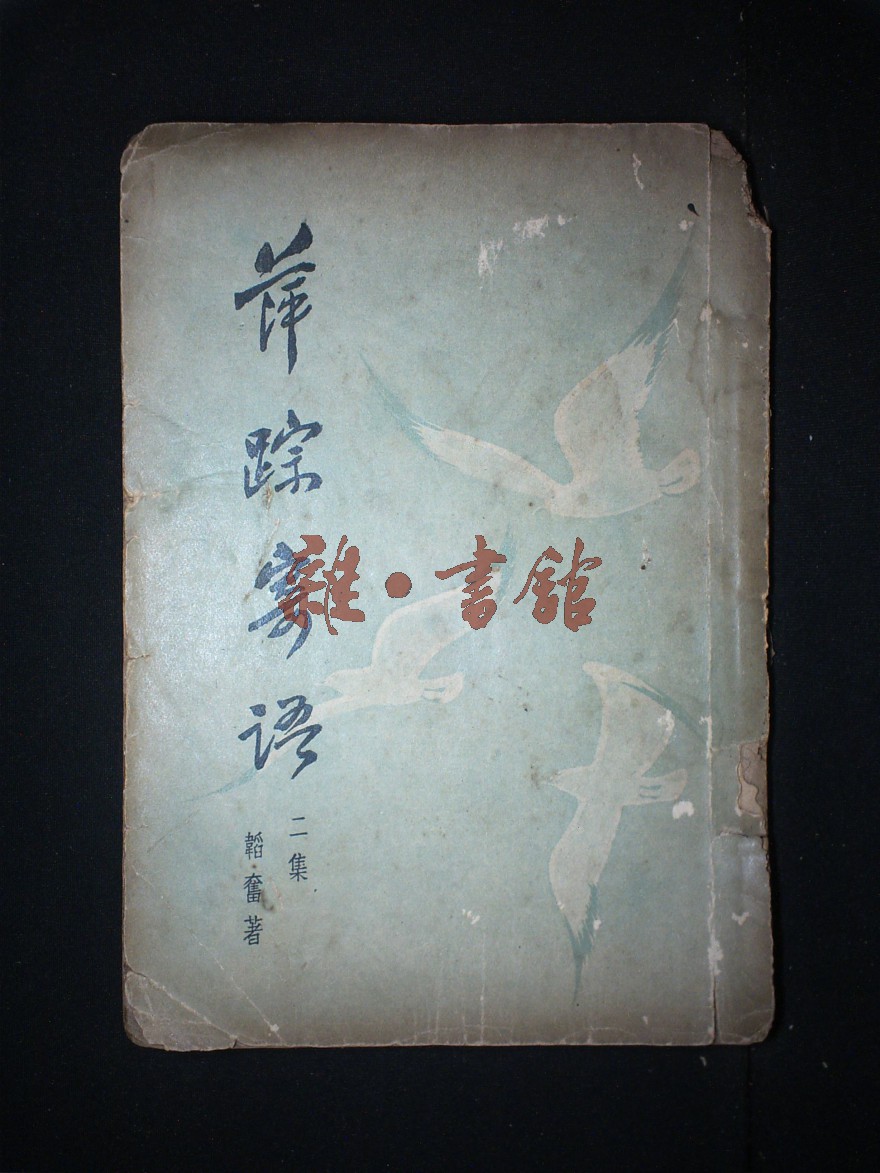 萍踪寄语
二集
韜奮著
雜·書館